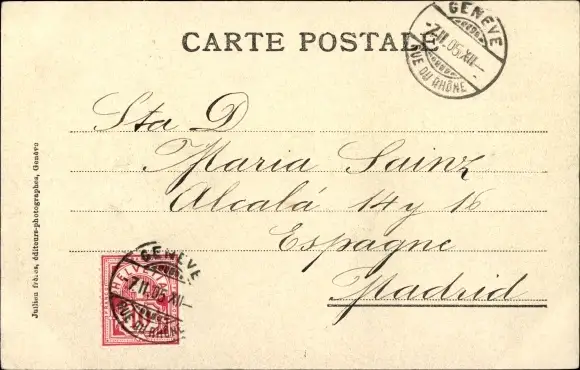 CARTE POSTALE
GENÈVE
-7.II.05.XII-
RUE DU RHÔNE
Sta D
Maria Sainz
Alcalá 14 y 16
Espagne
Madrid
Jullien frères, éditeurs-photographes, Genève
GENÈVE
-7.II.05.XII-
RUE DU RHÔNE
HELVETIA